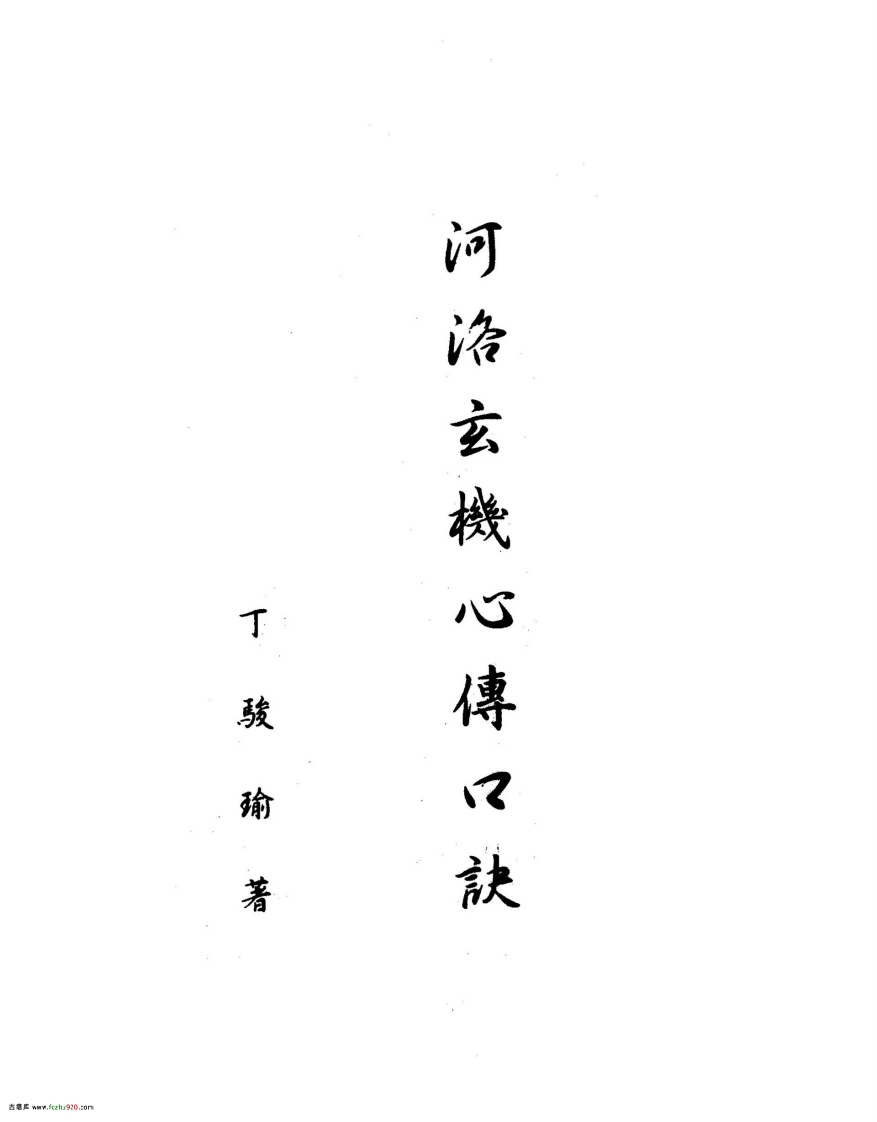 河洛玄機心傳口訣
丁駿瑜著
古籍库 www.fozhu920.com